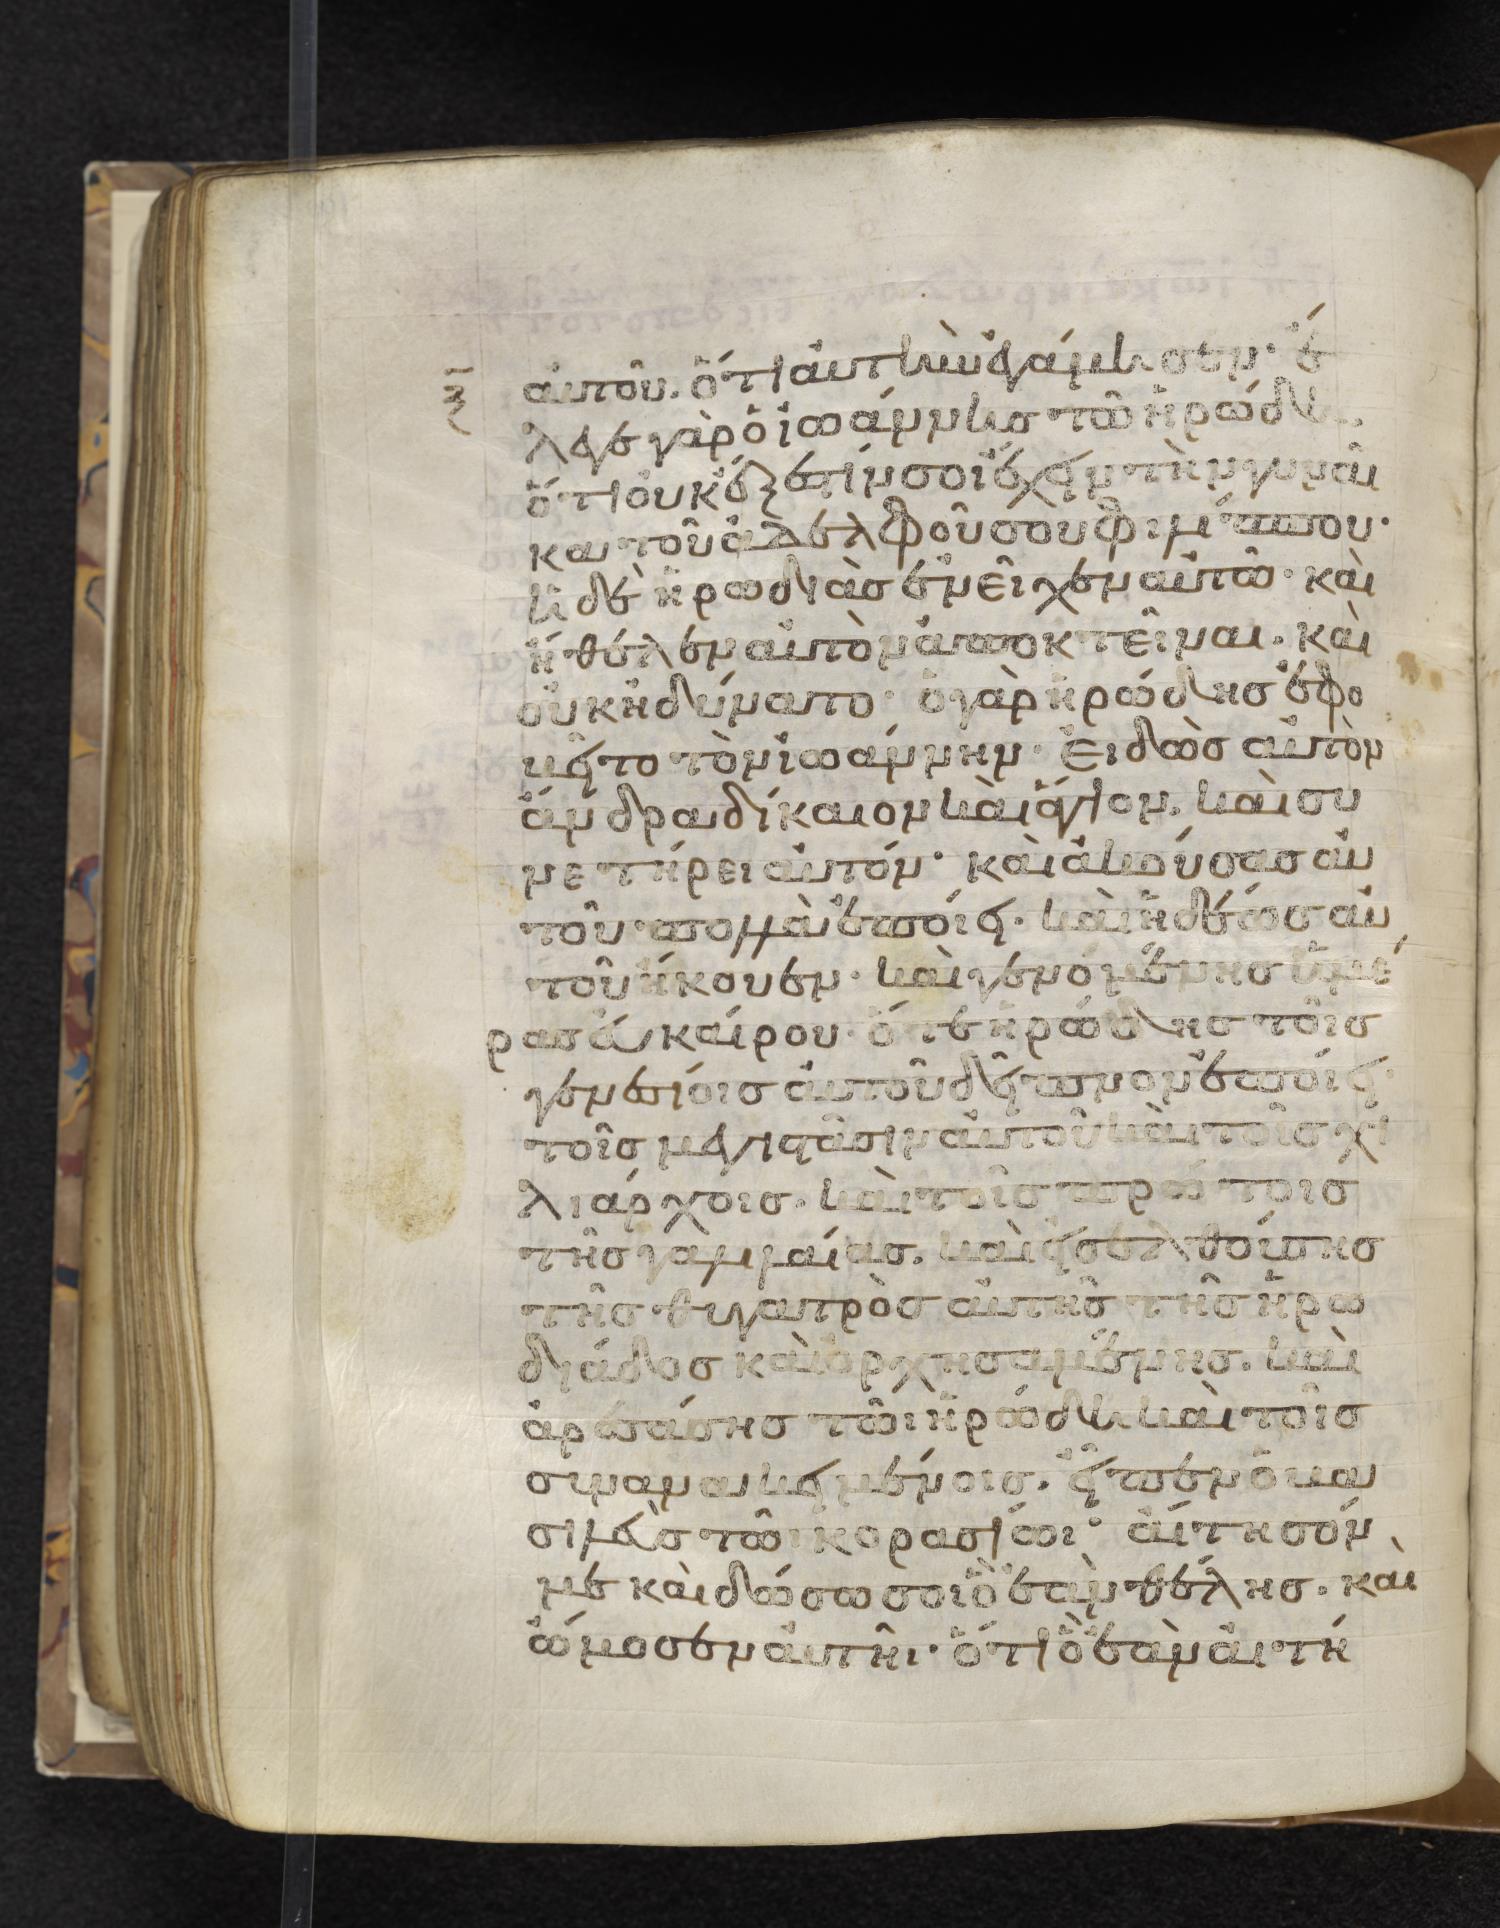 αὐτοῦ. ὅτι αὐτὴν ἐγάμησεν· ἔ
λεγε γὰρ ὁ ἰωάννης τῶ ἡρώδη.
ὅτι οὐκ ἔξεστίν σοι ἔχειν τὴν γυναῖ
κα τοῦ ἀδελφοῦ σου φιλίππου·
ἡ δὲ ἡρωδιὰσ ἐνεῖχεν αὐτῶ· καὶ
ἤθελεν αὐτὸν ἀποκτεῖναι. καὶ
οὐκ ἠδύνατο· ὁ γὰρ ἡρώδησ ἐφο
βεῖτο τὸν ἰωάννην· εἰδὼσ αὐτὸν
ἄνδρα δίκαιον καὶ ἅγιον. καὶ συ
νετήρει αὐτόν· καὶ ἀκούσασ αὐ
τοῦ πολλὰ ἐποίει. καὶ ἡδέωσ αὐ
τοῦ ἤκουεν· καὶ γενομένησ ἡμέ
ρασ εὐκαίρου· ὅτε ἡρώδησ τοῖσ
γενεσίοισ αὐτοῦ δεῖπνον ἐποίει
τοῖσ μεγιστᾶσιν αὐτοῦ καὶ τοῖσ χι
λιάρχοισ. καὶ τοῖσ πρώτοισ
τῆσ γαλιλαίασ. καὶ εἰσελθούσησ
τῆσ θυγατρὸσ αὐτῆσ τῆσ ἡρω
διάδοσ καὶ ὀρχησαμένησ. καὶ
ἀρεσάσησ τῶι ἡρώδη καὶ τοῖσ
συνανακειμένοισ. εἶπεν ὁ βα
σιλεὺσ τῶι κορασίωι· αἴτησόν
με καὶ δώσω σοι ὃ ἐὰν θέλησ. καὶ
ὤμοσεν αὐτῆι· ὅτι ὃ ἐὰν αἰτή